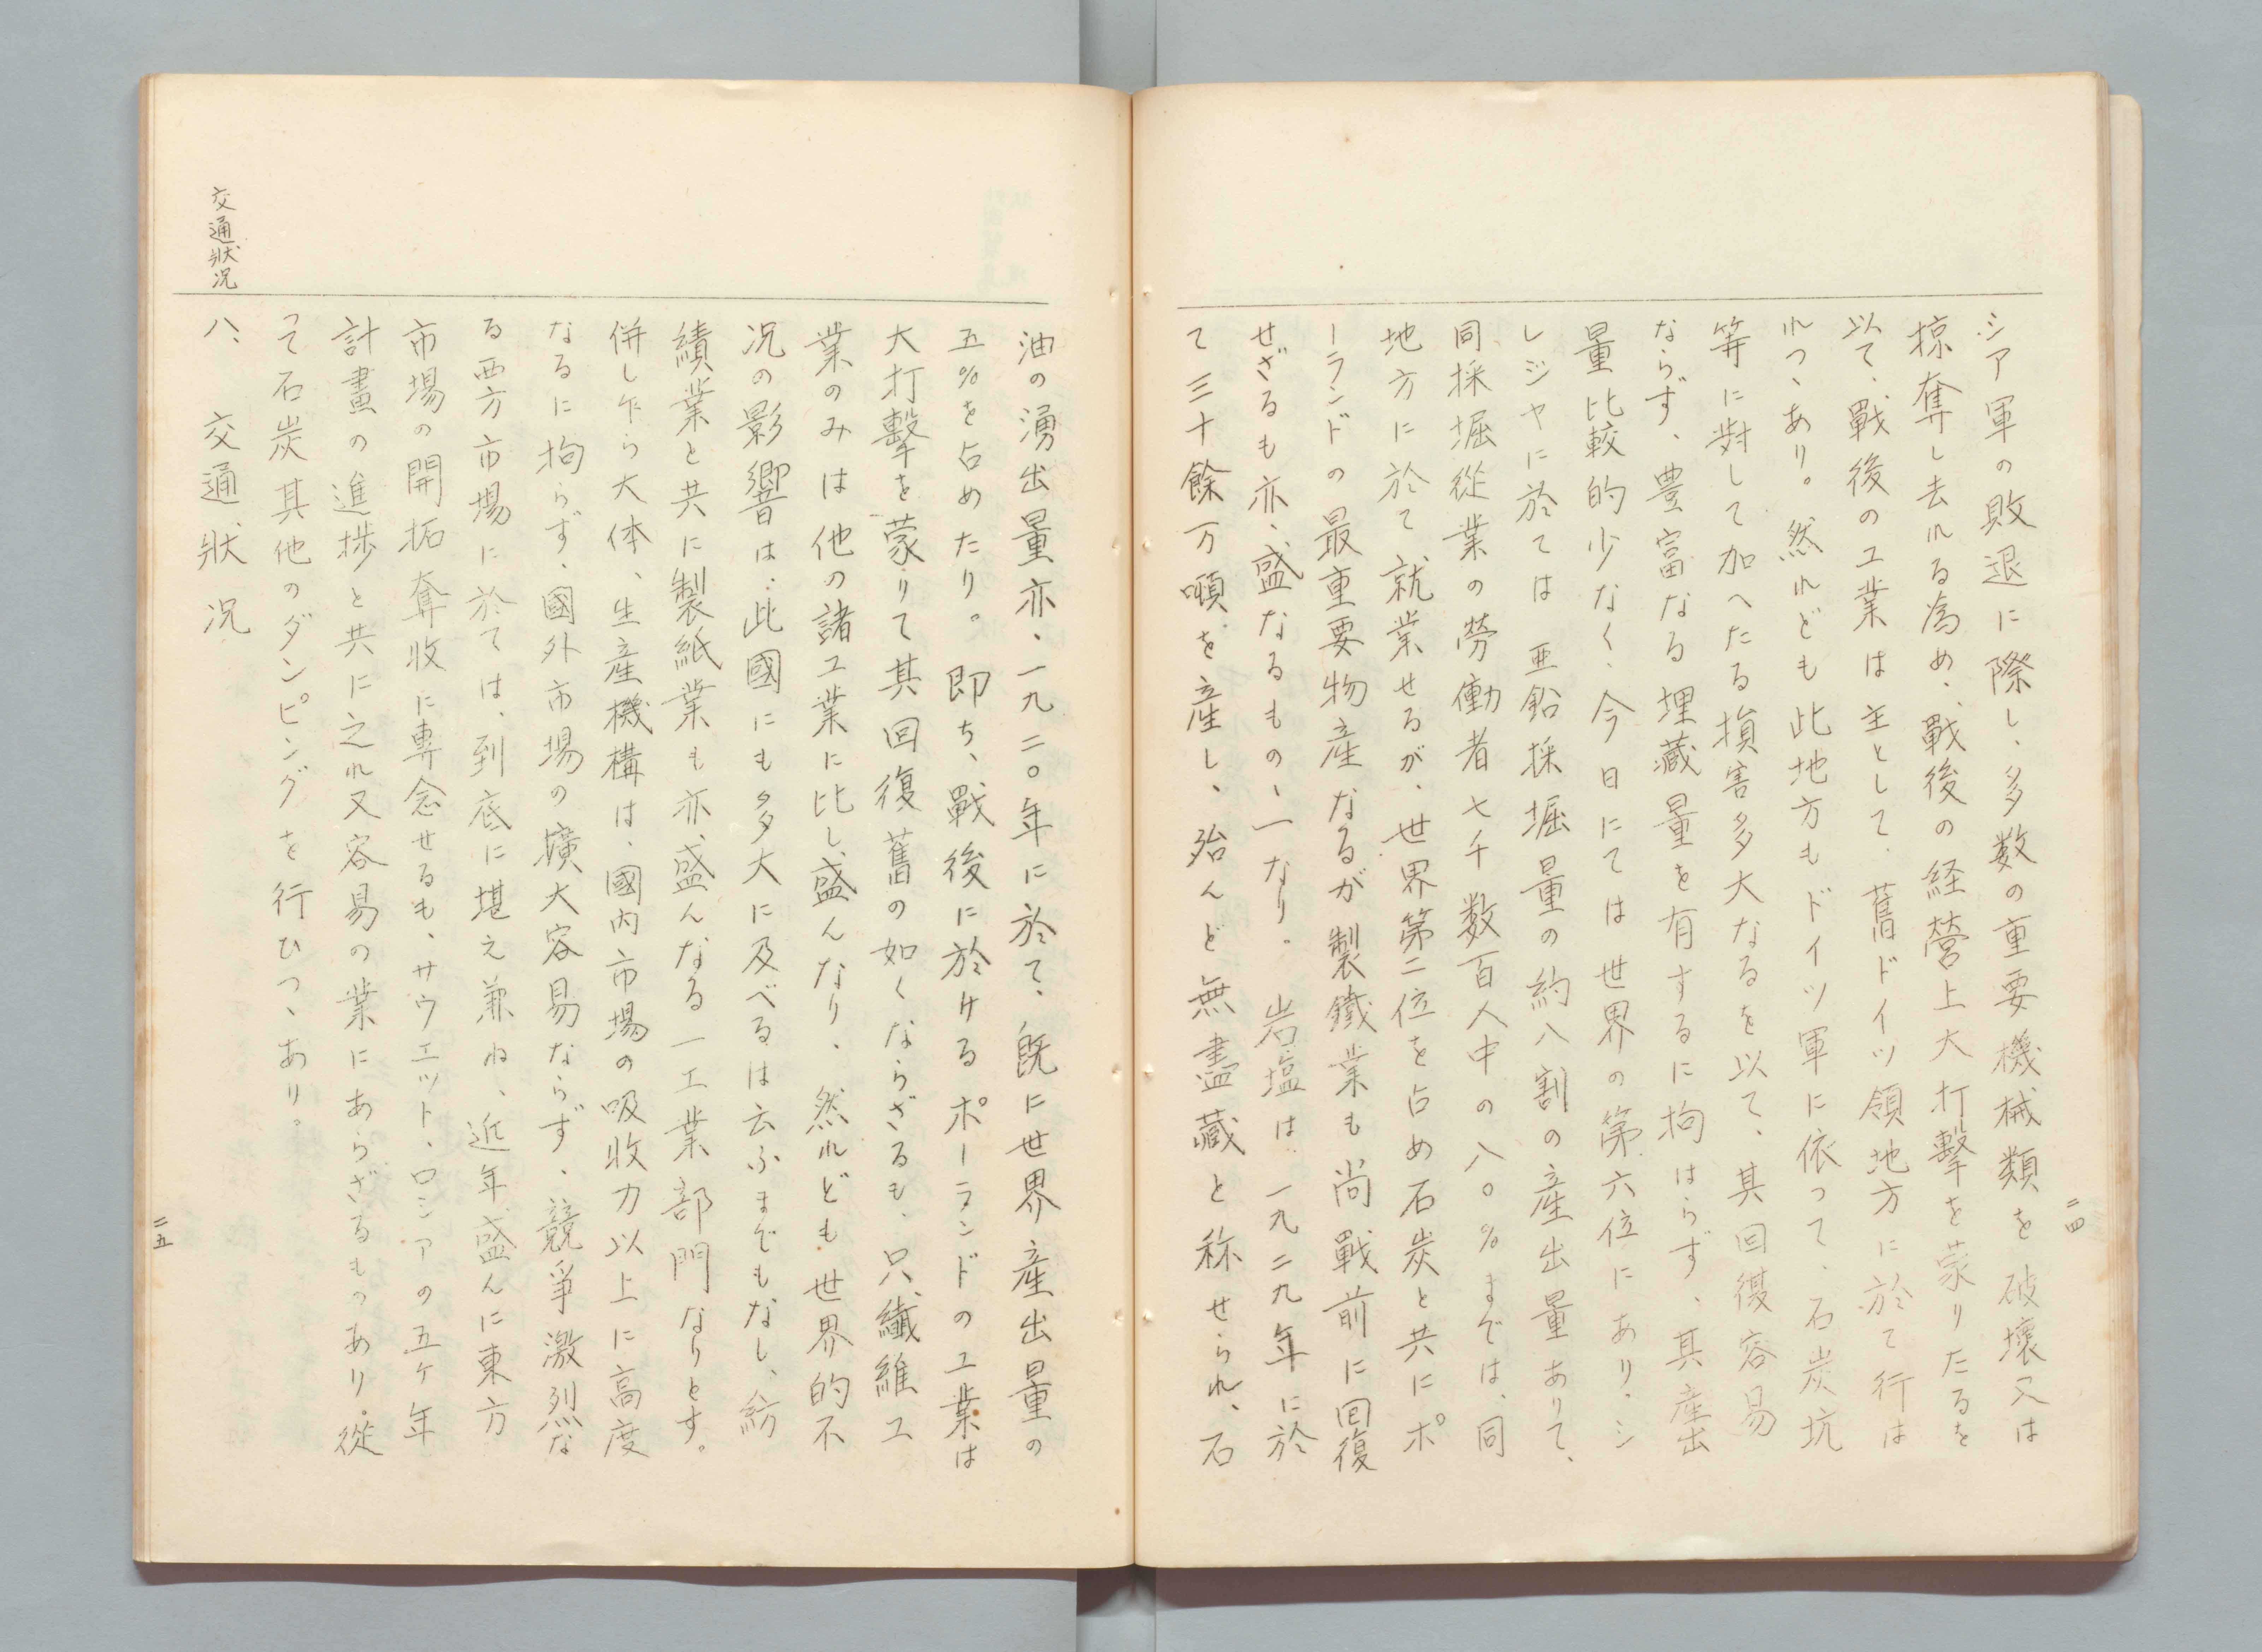 二四
シア軍の敗退に際し、多数の重要機械類を破壊又は
掠奪し去れる為め、戰後の経營上大打擊を蒙りたるを
以て、戰後の工業は主として、舊ドイツ領地方に於て行は
れつゝあり。然れども此地方もドイツ軍に依つて、石炭坑
等に對して加へたる損害多大なるを以て、其回復容易
ならず、豊富なる埋藏量を有するに拘はらず、其産出
量比較的少なく、今日にては世界の第六位にあり、シ
レジヤに於ては亜鉛採堀量の約八割の産出量ありて、
同採堀從業の勞働者七千数百人中の八〇%までは、同
地方に於て就業せるが、世界第二位を占め石炭と共にポ
ーランドの最重要物産なるが製鐵業も尚戰前に回復
せざるも亦、盛なるものゝ一なり。岩塩は一九二九年に於
て三十餘万噸を産し、殆んど無盡藏と称せられ、石
油の湧出量亦、一九二〇年に於て、既に世界産出量の
五%を占めたり。即ち、戰後に於けるポーランドの工業は
大打擊を蒙りて其回復舊の如くならざるも、只、纖維工
業のみは他の諸工業に比し、盛んなり、然れども世界的不
況の影響は、此國にも多大に及べるは云ふまでもなし、紡
績業と共に製紙業も亦、盛んなる一工業部門なりとす。
併し乍ら大体、生産機構は、國内市場の吸收力以上に高度
なるに拘らず、國外市場の擴大容易ならず、競爭激烈な
る西方市場に於ては、到底に堪え兼ね、近年盛んに東方
市場の開拓奪收に專念せるも、サウエット、ロシアの五ケ年
計畫の進捗と共に之れ又容易の業にあらざるものあり、從
つて石炭其他のダンピングを行ひつゝあり。
交通狀況
八、交通狀況
二五